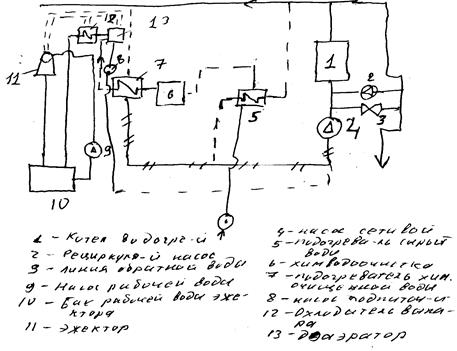 13
12
8
7
1
2
11
6
5
3
4
9
10
1 - Котел водогре-й
2 - Рециркуля-й насос
3 - линия обратной воды
9 - Насос рабочей воды
10 - Бак рабочей воды эже-
ктора
11 - Эжектор
4 - насос сетивой
5 - подогрева-ль сырой
воды
6 - химводоочистка
7 - подогреватель хим.
очищенной воды
8 - насос подпиточ-й
12 - Охладитель выпа-
ра
13 - Деаэратор